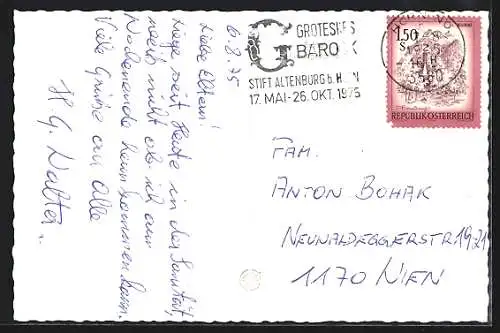 6.8.75
Liebe Eltern!
Liege seit Heute in der Sanität,
weiß nicht ob ich am
Wochenende heim kommen kann.
Viele Grüße an Alle
H. G. Walter
GROTESKES
BAROCK
STIFT ALTENBURG b. HORN
17. MAI-26. OKT. 1975
1.50
S
REPUBLIK ÖSTERREICH
FAM.
ANTON BOHAK
NEUWALDEGGERSTR 19/21
1170 WIEN